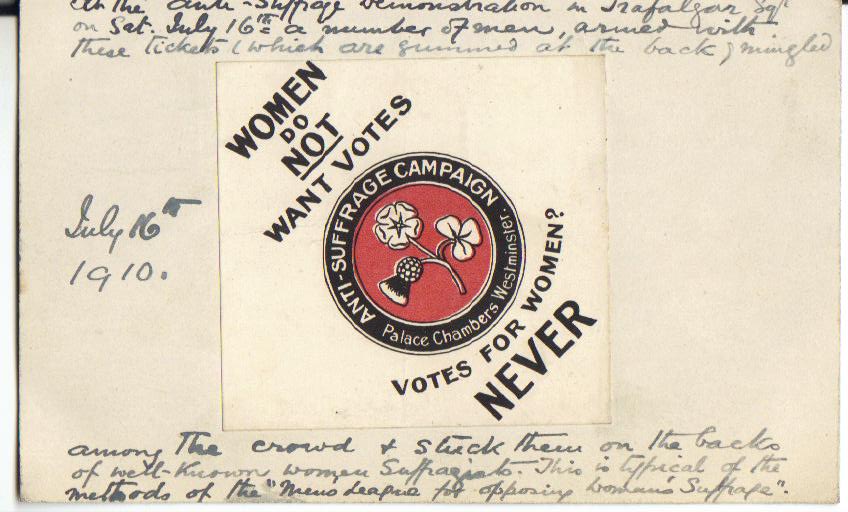 At the Anti-Suffrage Demonstration in Trafalgar Sqr
on Sat. July 16th a number of men, armed with
these tickets (which are gummed at the back) mingled
WOMEN
DO
NOT
WANT VOTES
ANTI-SUFFRAGE CAMPAIGN
Palace Chambers Westminster.
July 16th
1910.
VOTES FOR WOMEN?
NEVER
among the crowd & stuck them on the backs
of well-known women Suffragists. This is typical of the
methods of the "Men's League for opposing Woman's Suffrage".